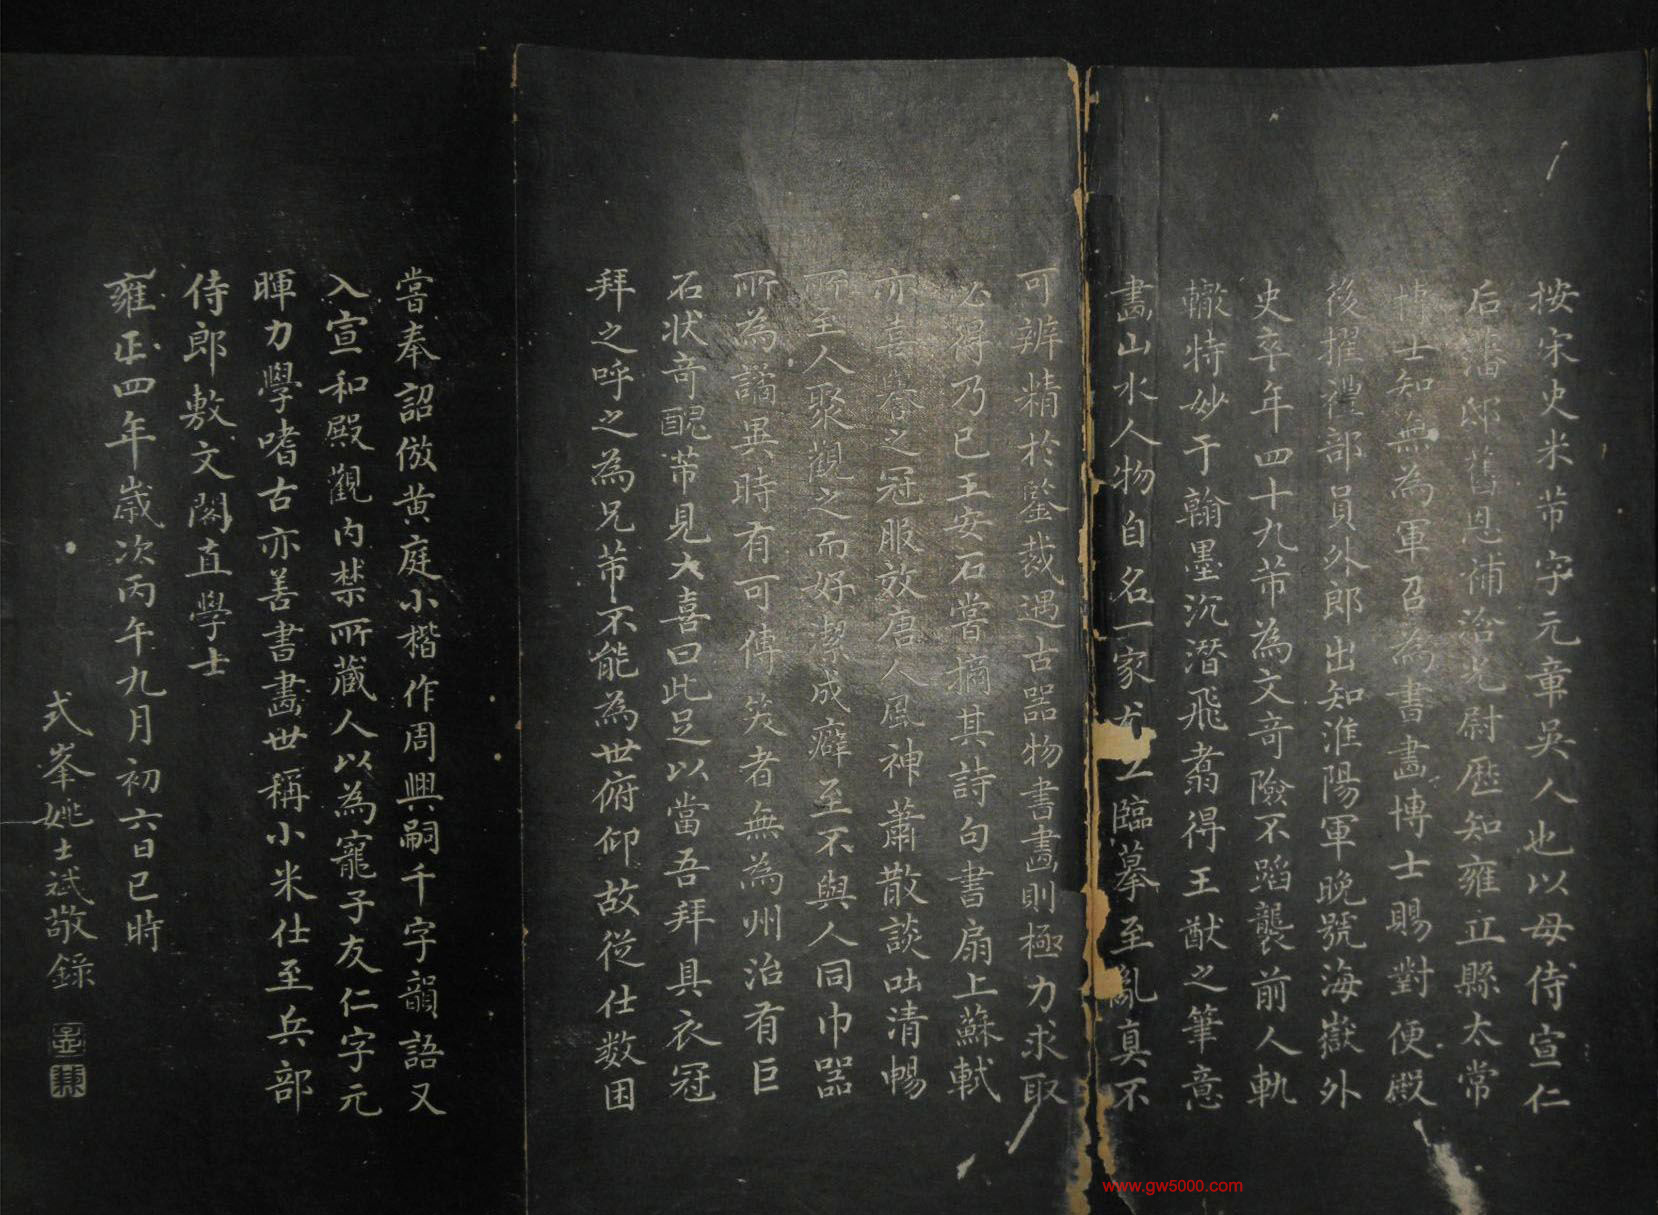 按宋史米芾字元章吳人也以母侍宣仁
后藩邸舊恩補浛光尉歷知雍丘縣太常
博士知無為軍召為書畫博士賜對便殿
後擢禮部員外郎出知淮陽軍晚號海嶽外
史卒年四十九芾為文奇險不蹈襲前人軌
轍特妙于翰墨沉潛飛翥得王獻之筆意
畫山水人物自名一家尤工臨摹至亂真不
可辨精於鑒裁遇古器物書畫則極力求取
必得乃已王安石嘗摘其詩句書扇上蘇軾
亦喜譽之冠服效唐人風神蕭散談吐清暢
所至人聚觀之而好潔成癖至不與人同巾器
所為譎異時有可傳笑者無為州治有巨
石狀奇醜芾見大喜曰此足以當吾拜具衣冠
拜之呼之為兄芾不能為世俯仰故從仕数困
嘗奉詔倣黄庭小楷作周興嗣千字韻語又
入宣和殿觀內禁所藏人以為寵子友仁字元
暉力學嗜古亦善書畫世稱小米仕至兵部
侍郎敷文閣直學士
雍正四年歲次丙午九月初六日巳時
式峯姚士斌敬錄
www.gw5000.com